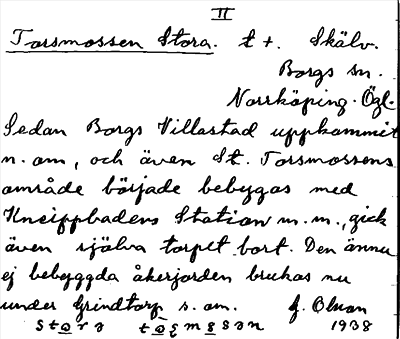 II
Torsmossen Stora. t +. Skälv.
Borgs sn.
Norrköping. Ögl.
Sedan Borgs Villastad uppkommit
n. om, och även St. Torsmossens
område började bebyggas med
Kneippbadens Station m. m., gick
även själva torpet bort. Den ännu
ej bebyggda åkerjorden brukas nu
under Grindtorp s. om. G. Olson
1938